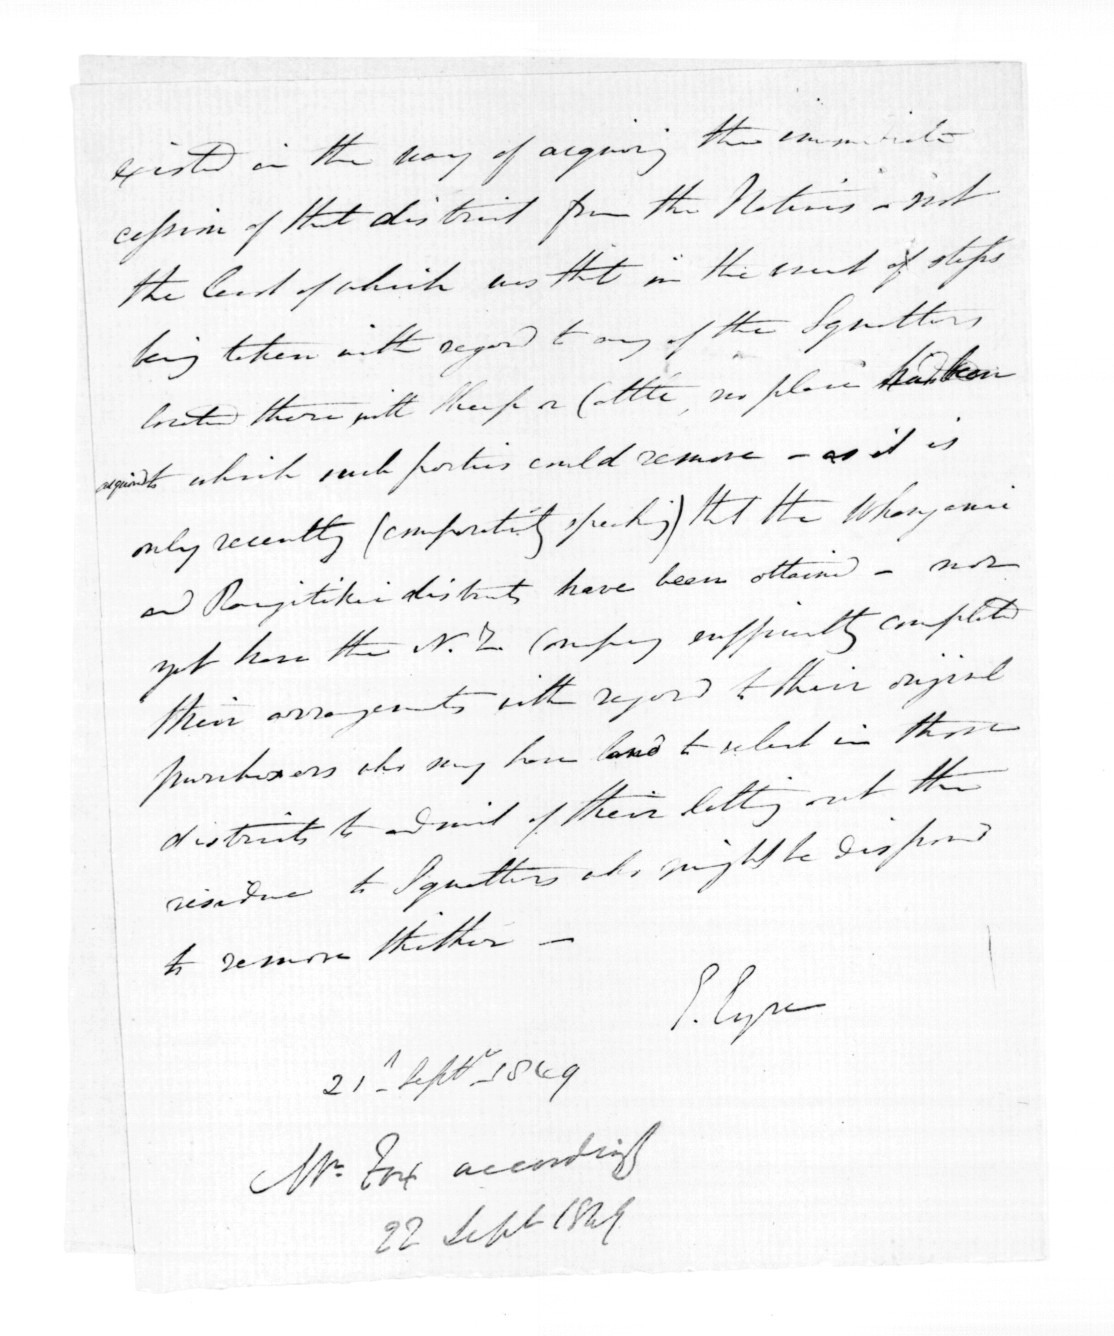 existed in the way of acquiring the immediate
cession of that district from the Natives - not
the least of which was that in the event of steps
being taken with regard to any of the Squatters
located there with Sheep or Cattle, no place had been
acquired to which such parties could remove - as it is
only recently (comparatively speaking) that the Whanganui
and Rangitikei districts have been obtained - nor
yet have the N.Z. Company sufficiently completed
their arrangements with regard to their original
purchasers who may have land to select in those
districts to admit of their letting out the
residue to Squatters who might be disposed
to remove thither -
E. Eyre
21st Septr 1849
Mr. Fox accordingly
22 Sept 1849